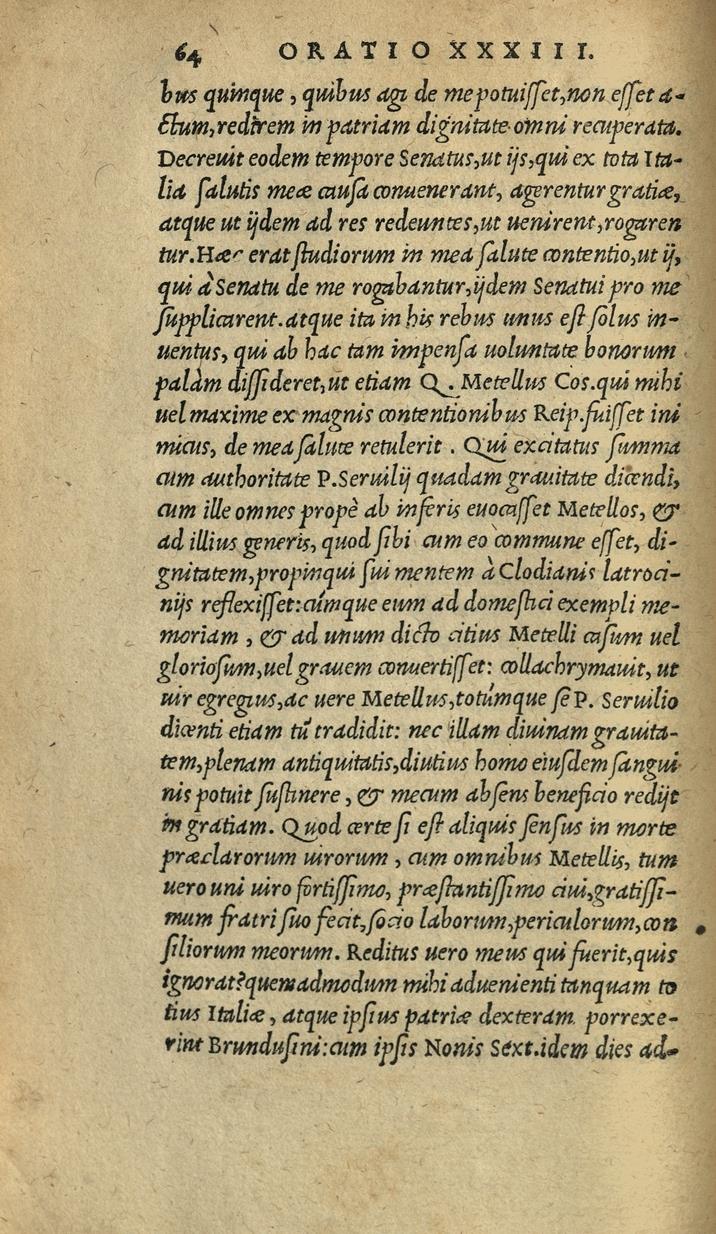 64 ORATIO XXXIII.
bus quinque, quibus agi de me potuiſſet, non eſſet a-
ctum, redirem in patriam dignitate omni recuperata.
Decreuit eodem tempore Senatus, ut ijs, qui ex tota Ita-
lia ſalutis meæ cauſa conuenerant, agerentur gratiæ,
atque ut ijdem ad res redeuntes, ut uenirent, rogaren
tur. Hæc erat ſtudiorum in mea ſalute contentio, ut ij,
qui à Senatu de me rogabantur, ijdem Senatui pro me
ſupplicarent. atque ita in his rebus unus eſt ſolus in-
uentus, qui ab hac tam impenſa uoluntate bonorum
palàm diſſideret, ut etiam Q. Metellus Cos. qui mihi
uel maxime ex magnis contentionibus Reip. fuiſſet ini
micus, de mea ſalute retulerit. Qui excitatus ſumma
cum authoritate P. Seruilij quadam grauitate dicendi,
cum ille omnes propè ab inferis euocaſſet Metellos, &
ad illius generis, quod ſibi cum eo commune eſſet, di-
gnitatem, propinqui ſui mentem à Clodianis latroci-
nijs reflexiſſet: cúmque eum ad domeſtici exempli me-
moriam, & ad unum dicto citius Metelli caſum uel
glorioſum, uel grauem conuertiſſet: collachrymauit, ut
uir egregius, ac uere Metellus, totúmque ſe P. Seruilio
dicenti etiam tū tradidit: nec illam diuinam grauita-
tem, plenam antiquitatis, diutius homo eiuſdem ſangui
nis potuit ſuſtinere, & mecum abſens beneficio redijt
in gratiam. Quod certe ſi eſt aliquis ſenſus in morte
præclarorum uirorum, cum omnibus Metellis, tum
uero uni uiro fortiſſimo, præſtantiſſimo ciui, gratiſſi-
mum fratri ſuo fecit, ſocio laborum, periculorum, con
ſiliorum meorum. Reditus uero meus qui fuerit, quis
ignorat? quemadmodum mihi aduenienti tanquam to
tius Italiæ, atque ipſius patriæ dexteram porrexe-
rint Brunduſini: cum ipſis Nonis Sext. idem dies ad-